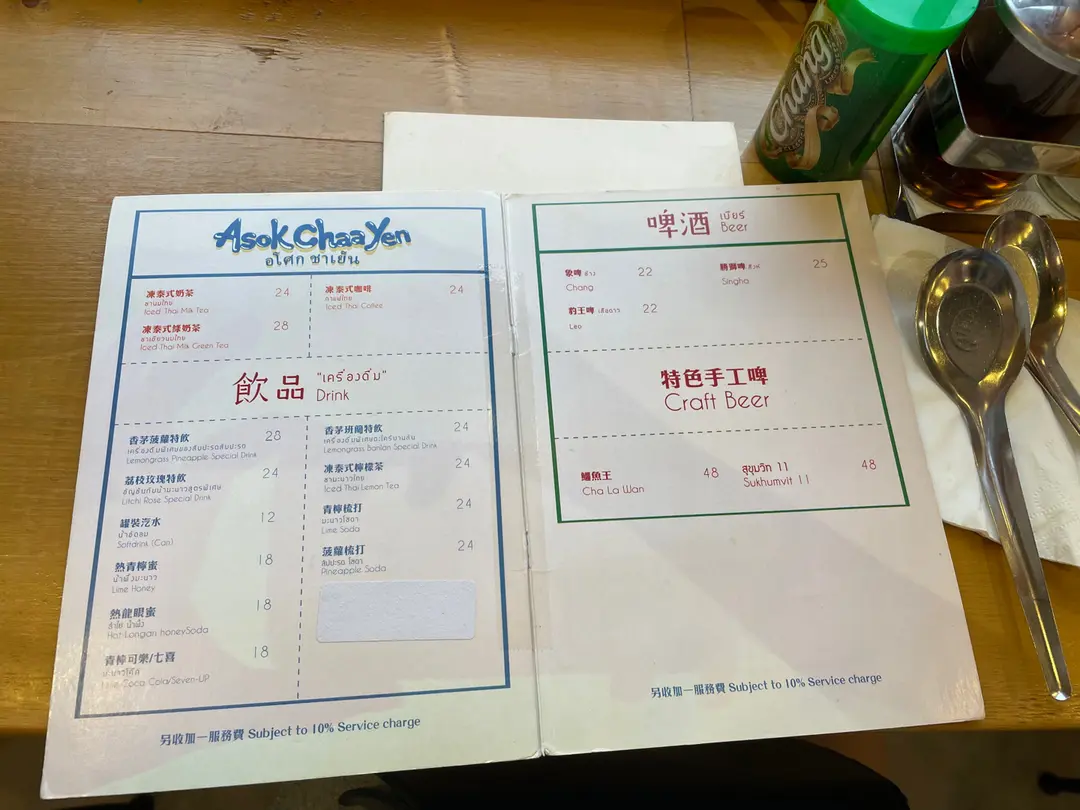 Chang
Asok Chaa Yen
อโศก ชาเย็น
凍泰式奶茶 24
ชานมไทย
Iced Thai Milk Tea
凍泰式綠奶茶 28
ชาเขียวนมไทย
Iced Thai Milk Green Tea
凍泰式咖啡 24
กาแฟไทย
Iced Thai Coffee
飲品 "เครื่องดื่ม"
Drink
香茅菠蘿特飲 28
Lemongrass Pineapple Special Drink
荔枝玫瑰特飲 24
Litchi Rose Special Drink
罐裝汽水 12
น้ำอัดลม
Softdrink (Can)
熱青檸蜜 18
น้ำผึ้งมะนาว
Lime Honey
熱龍眼蜜 18
ลำไย น้ำผึ้ง
Hot Longan honeySoda
青檸可樂/七喜 18
Coca Cola/Seven-UP
香茅班蘭特飲 24
Lemongrass Banlan Special Drink
凍泰式檸檬茶 24
ชามะนาวไทย
Iced Thai Lemon Tea
青檸梳打 24
มะนาวโซดา
Lime Soda
菠蘿梳打 24
สับปะรด โซดา
Pineapple Soda
另收加一服務費 Subject to 10% Service charge
啤酒 เบียร์
Beer
象啤 ช้าง 22
Chang
勝獅啤 สิงห์ 25
Singha
豹王啤 เสือดาว 22
Leo
特色手工啤
Craft Beer
鱷魚王 48
Cha La Wan
สุขุมวิท 11 48
Sukhumvit 11
另收加一服務費 Subject to 10% Service charge